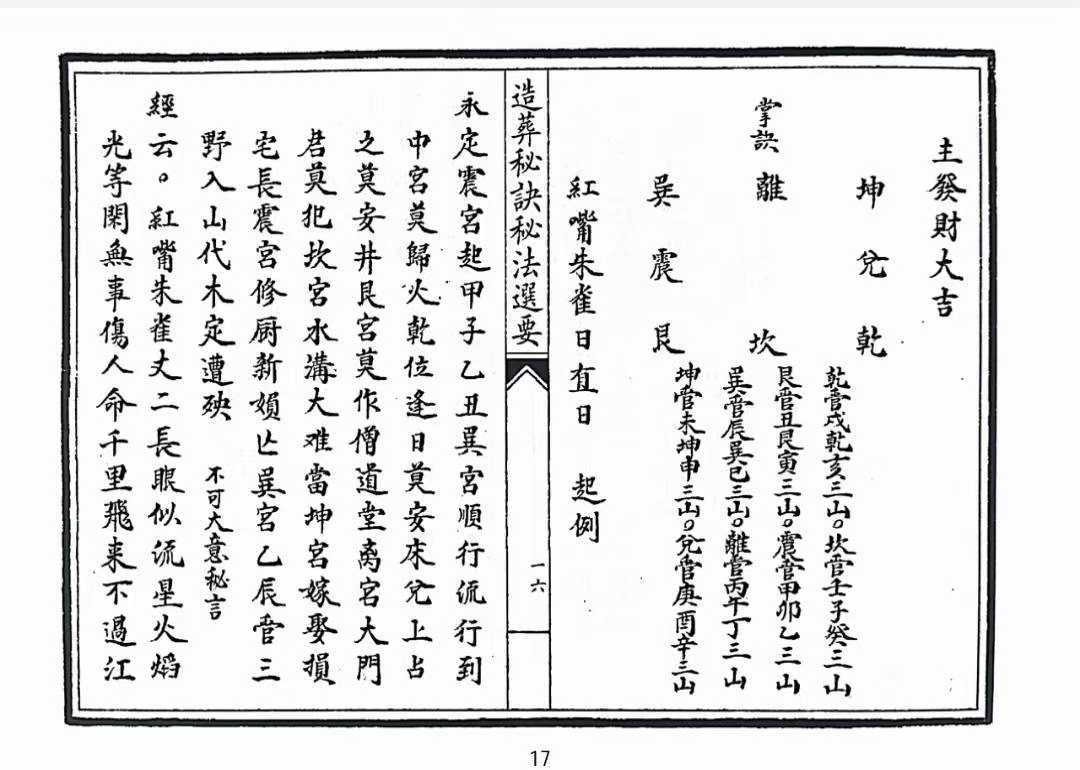 主發財大吉
坤 兌 乾
乾管戌乾亥三山。坎管壬子癸三山
掌訣 離 坎
艮管丑艮寅三山。震管甲卯乙三山
巽管辰巽巳三山。離管丙午丁三山
巽 震 艮
坤管未坤申三山。兌管庚酉辛三山
紅嘴朱雀日直日 起例
造葬秘訣秘法選要
一六
永定震宮起甲子乙丑巽宮順行流行到
中宮莫歸火乾位逢日莫安床兌上占
之莫安井艮宮莫作僧道堂离宮大門
君莫犯坎宮水溝大难當坤宮嫁娶損
宅長震宮修厨新媍亡巽宮乙辰管三
野入山代木定遭殃 不可大意秘言
經云。紅嘴朱雀丈二長眼似流星火焰
光等閑無事傷人命千里飛来不過江
17